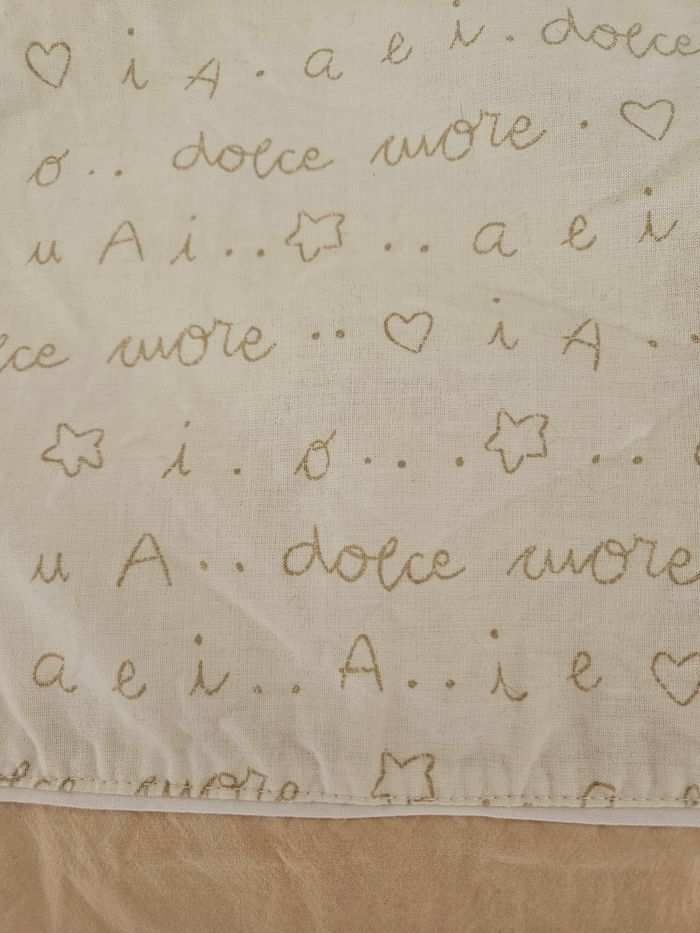 i A . a e i . dolce
o . . dolce cuore .
u A i . . . . a e i
lce cuore . . i A . .
i . o . . . . .
u A . . dolce cuore
a e i . . A . . i e
cuore